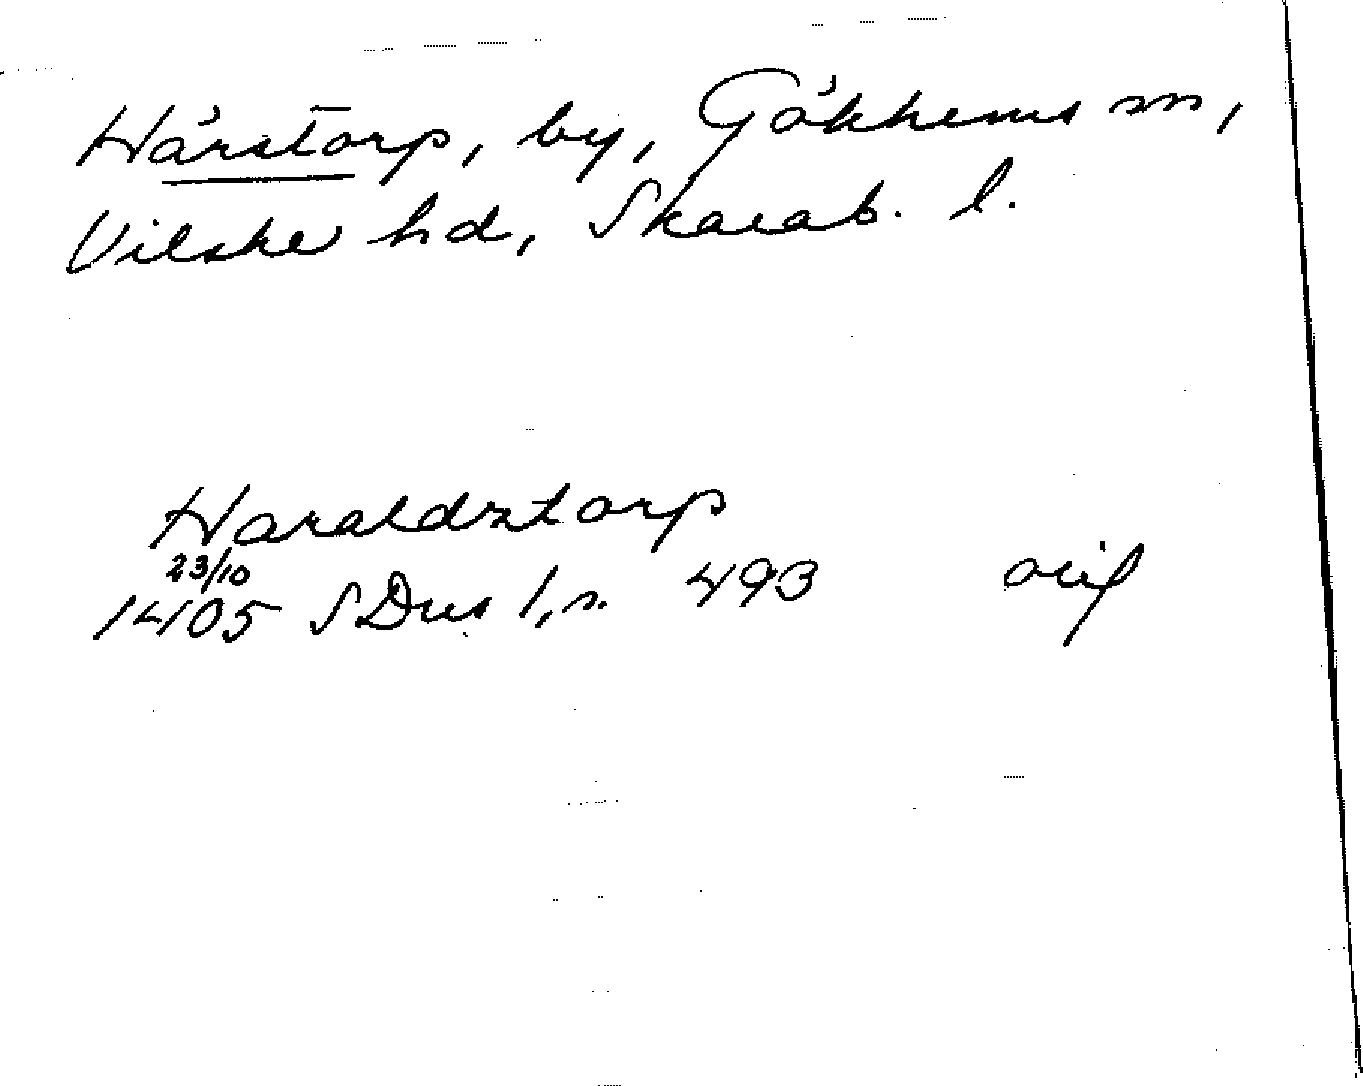 Hårstorp, by, Gökhems sn,
Vilske hd, Skarab. l.
Haraldztorp
23/10
1405 SDns 1, s. 493 orig